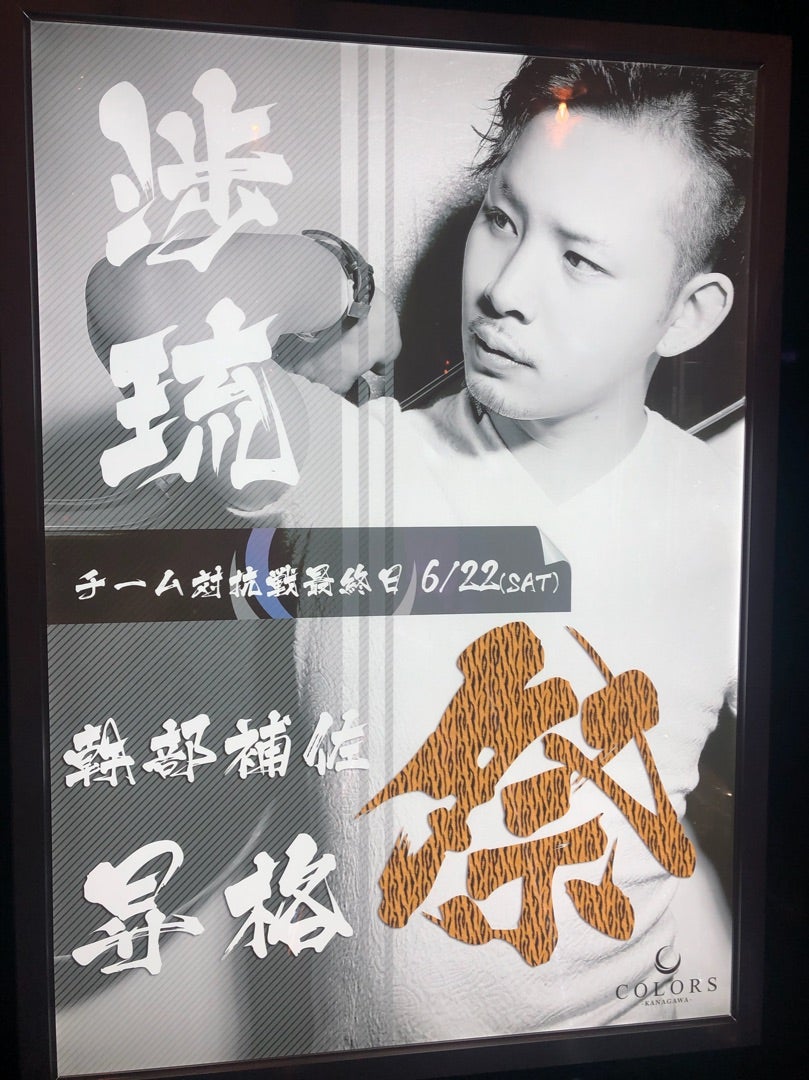 渉琉
チーム対抗戦最終日 6/22(SAT)
幹部補佐
昇格
祭
COLORS
-KANAGAWA-